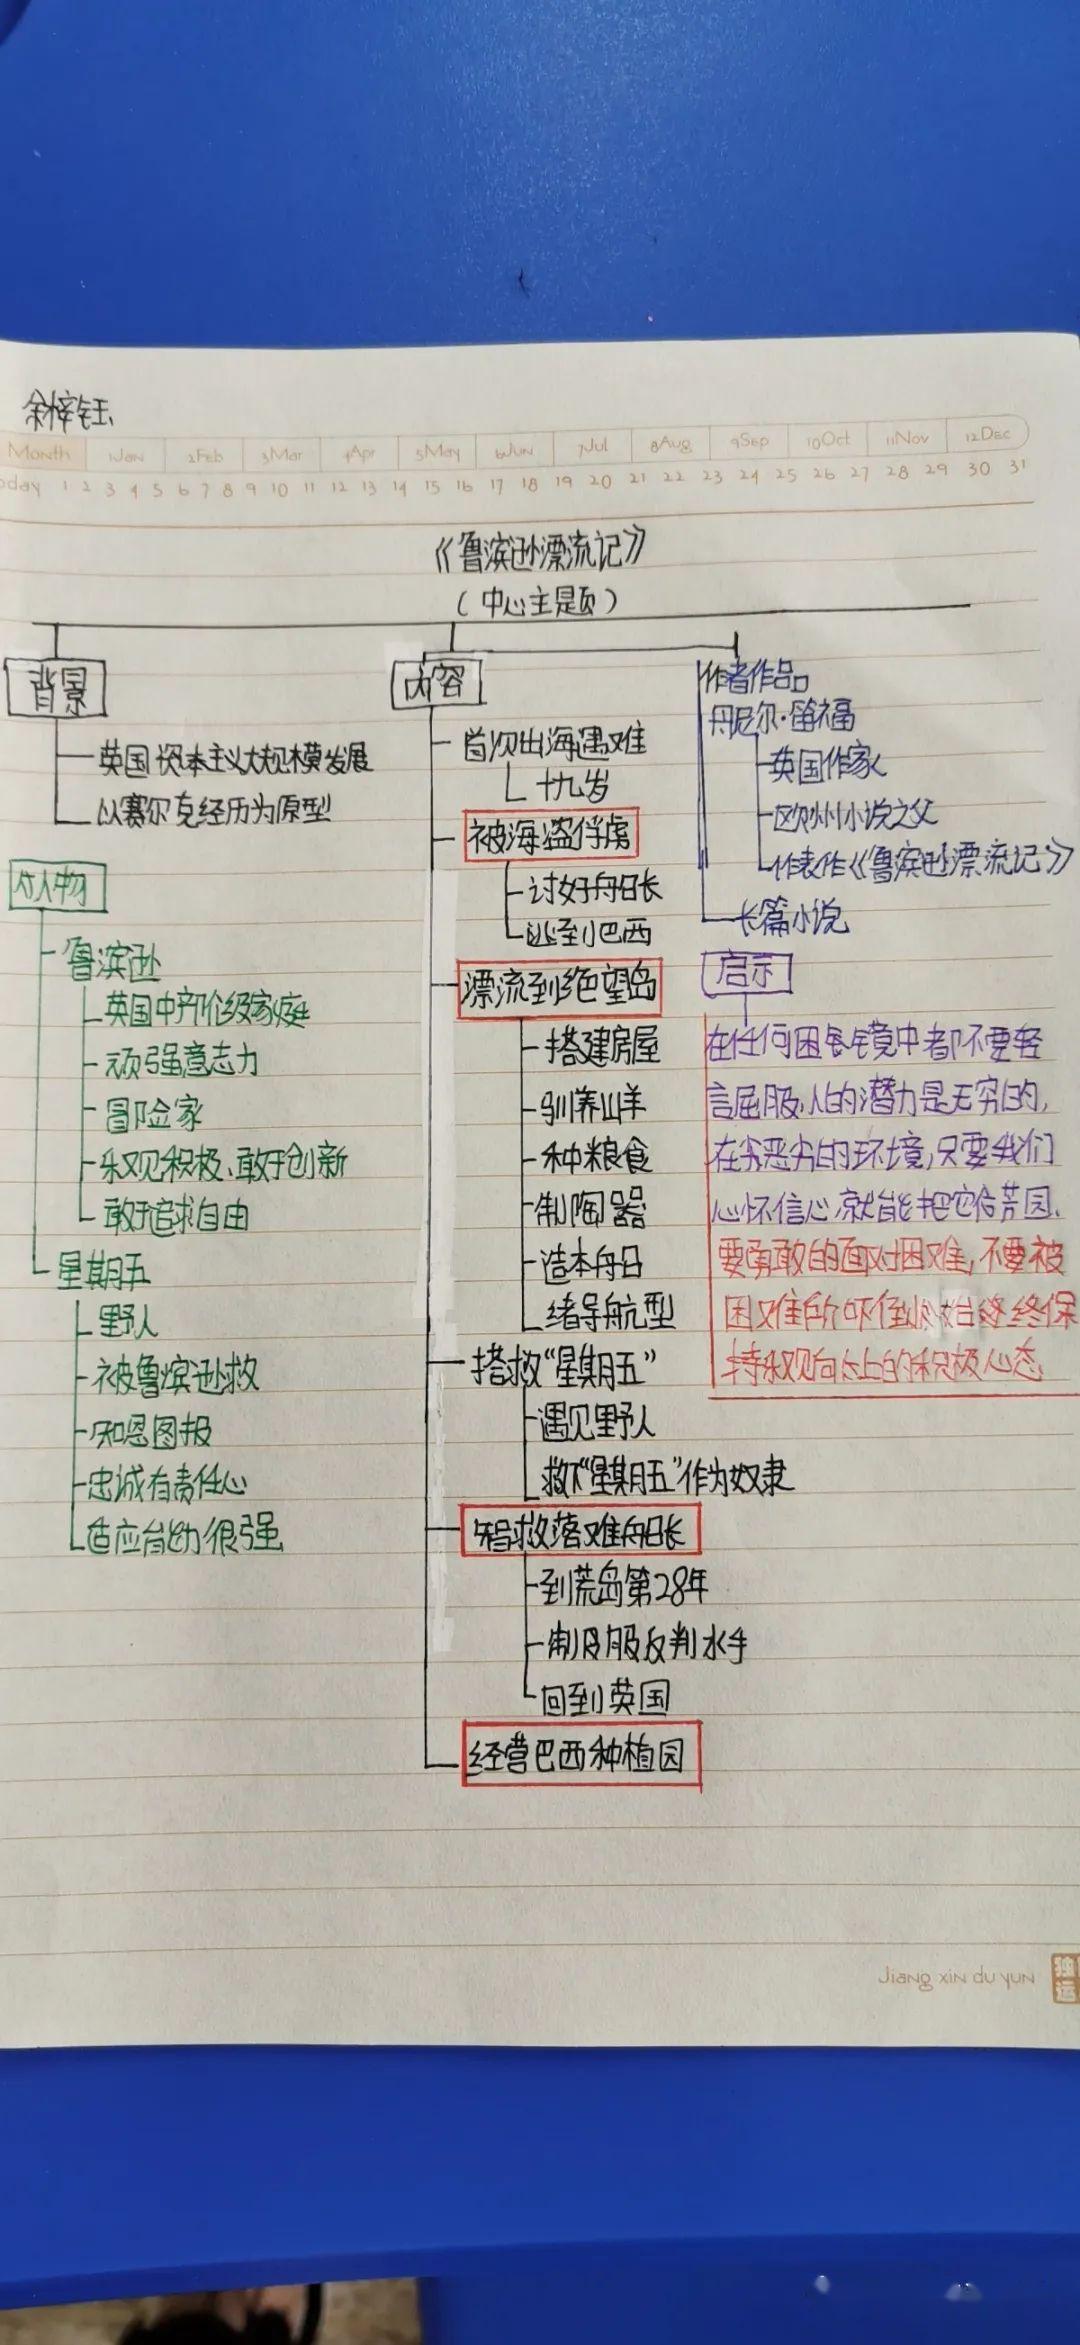 余梓钰
Month 1Jan 2Feb 3Mar 4Apr 5May 6Jun 7Jul 8Aug 9Sep 10Oct 11Nov 12Dec
oday 1 2 3 4 5 6 7 8 9 10 11 12 13 14 15 16 17 18 19 20 21 22 23 24 25 26 27 28 29 30 31
《鲁滨逊漂流记》
(中心主题页)
背景
英国资本主义大规模发展
以赛尔克经历为原型
人物
鲁滨逊
英国中产阶级家庭
顽强意志力
冒险家
乐观积极、敢于创新
敢于追求自由
星期五
野人
被鲁滨逊救
知恩图报
忠诚有责任心
适应能力很强
内容
首次出海遇难
十九岁
被海盗俘虏
讨好船长
逃到巴西
漂流到绝望岛
搭建房屋
驯养山羊
种粮食
制陶器
造木舟
绪导航型
搭救“星期五”
遇见野人
救下“星期五”作为奴隶
智救落难船长
到荒岛第28年
制服反判水手
回到英国
经营巴西种植园
作者作品
丹尼尔·笛福
英国作家
欧洲小说之父
作表作《鲁滨逊漂流记》
长篇小说
启示
在任何困镜中都不要轻
言屈服,人的潜力是无穷的,
在恶劣的环境,只要我们
心怀信心就能把它芳园.
要勇敢的面对困难,不要被
困难所吓倒始终保
持乐观向上的积极心态
Jiang xin du yun
独运